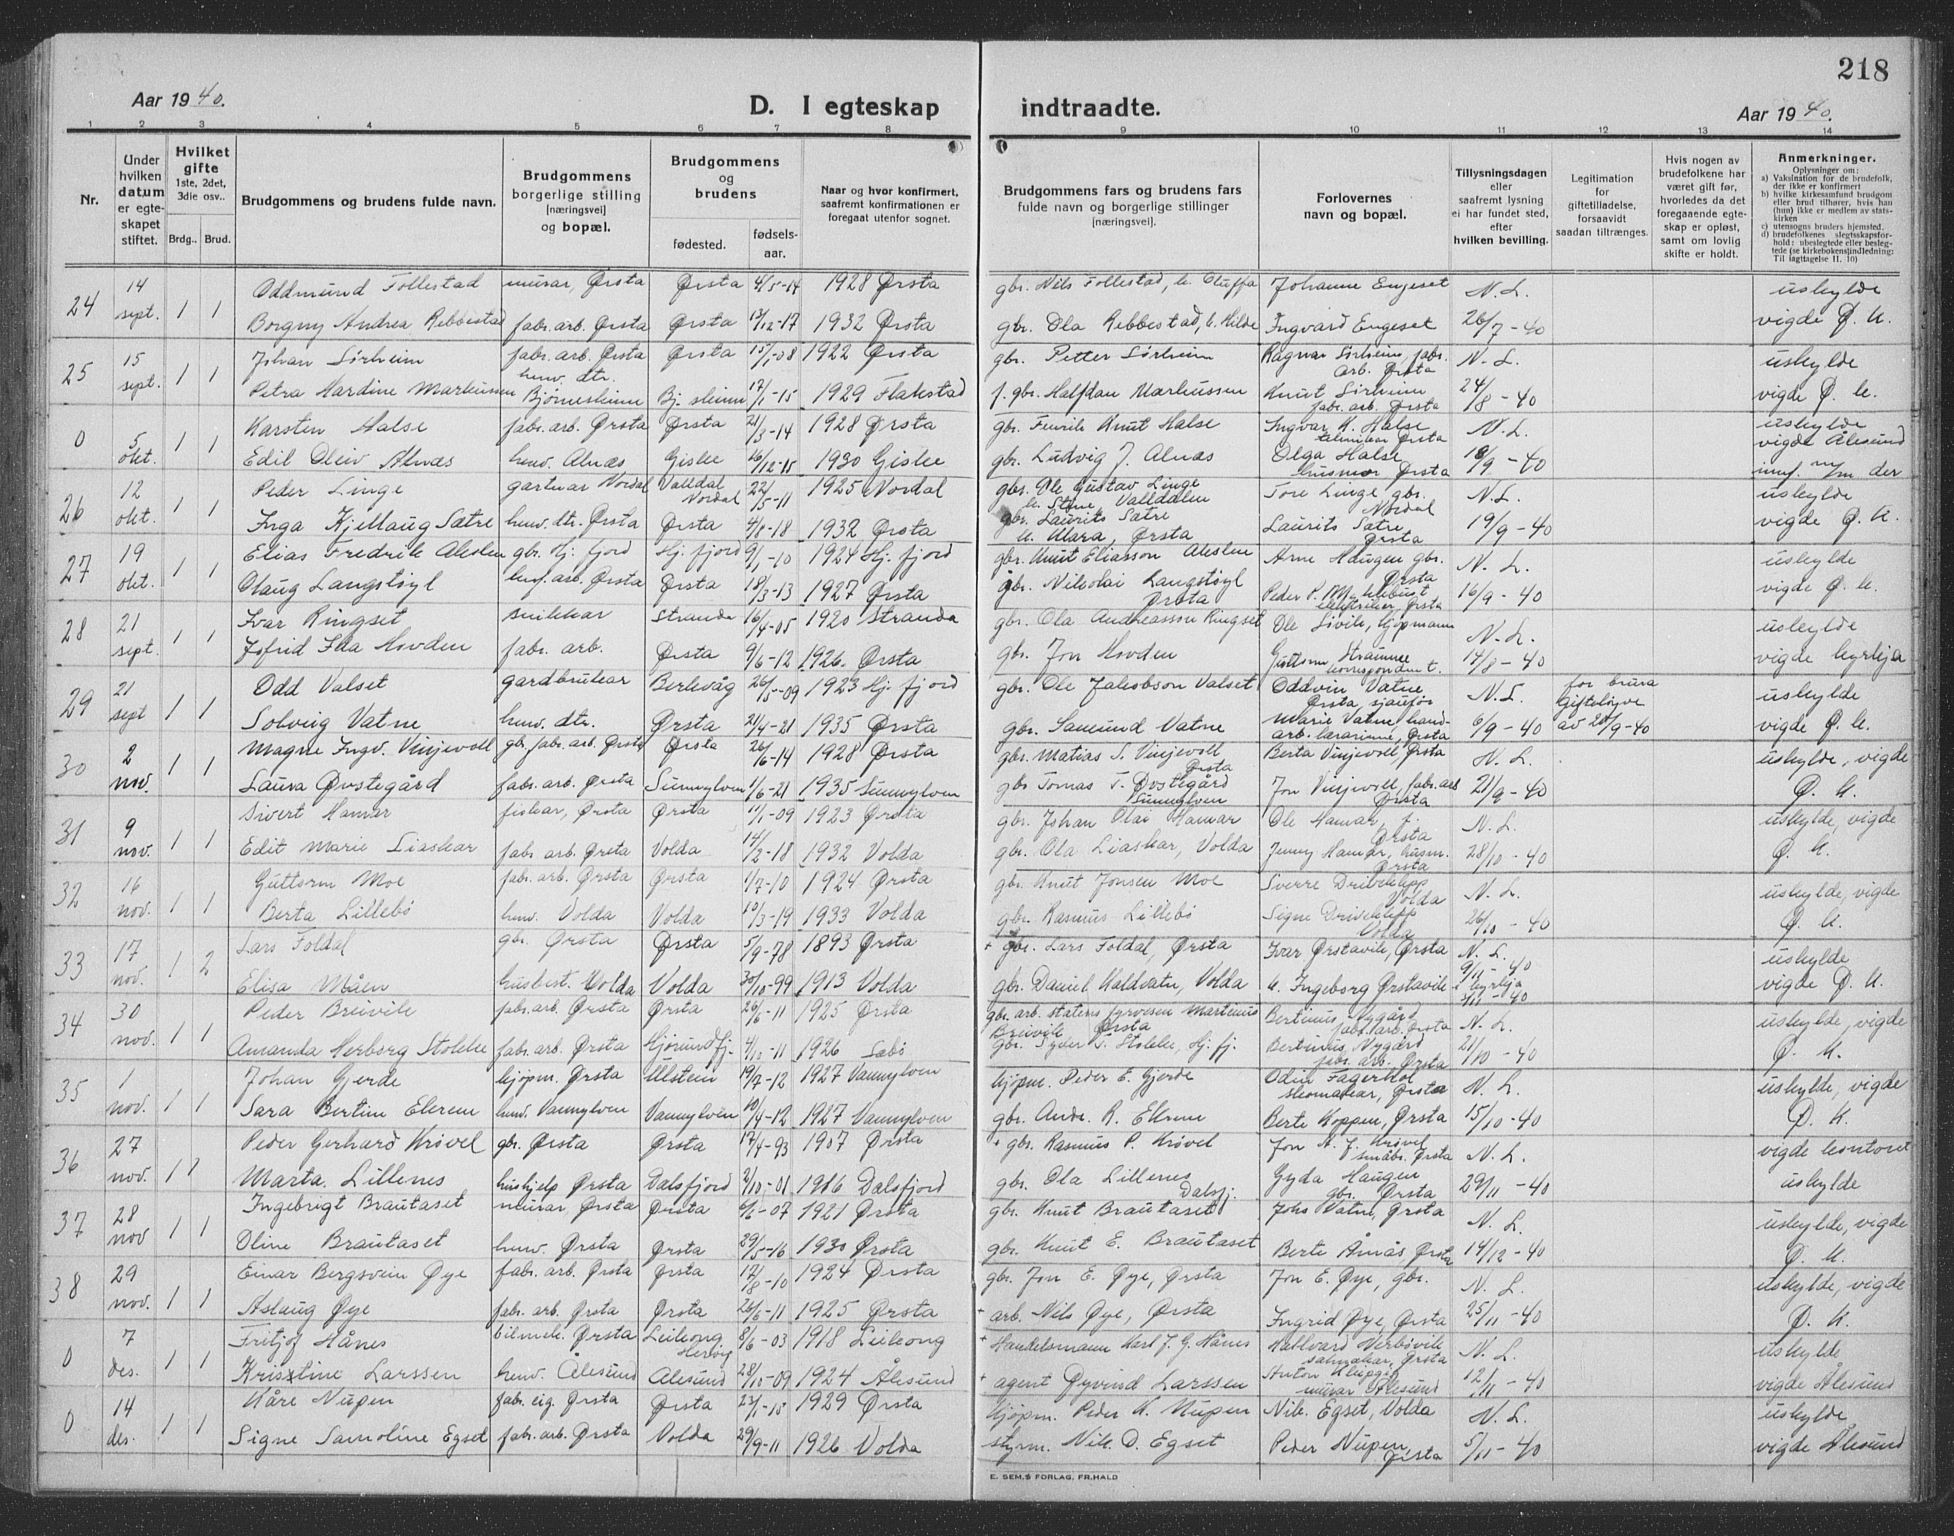 218
Aar 1940.
D. I egteskap indtraadte.
Aar 1940.
1 2 3 4 5 6 7 8 9 10 11 12 13 14
Nr.
Under hvilken datum er egteskapet stiftet.
Hvilket gifte 1ste, 2det, 3die osv..
Brdg.. Brud.
Brudgommens og brudens fulde navn.
Brudgommens borgerlige stilling [næringsvei] og bopæl.
Brudgommens og brudens
fødested. fødselsaar.
Naar og hvor konfirmert, saafremt konfirmationen er foregaat utenfor sognet.
Brudgommens fars og brudens fars fulde navn og borgerlige stillinger [næringsvei].
Forlovernes navn og bopæl.
Tillysningsdagen eller saafremt lysning ei har fundet sted, efter hvilken bevilling.
Legitimation for giftetilladelse, forsaavidt saadan tiltrænges.
Hvis nogen av brudefolkene har været gift før, hvorledes da det foregaaende egteskap er opløst, samt om lovlig skifte er holdt.
Anmerkninger.
Oplysninger om:
a) Vaksination for de brudefolk, der ikke er konfirmert
b) hvilke kirkesamfund brudgom eller brud tilhører, hvis han (hun) ikke er medlem av statskirken
c) utensogns bruders hjemsted.
d) brudefolkenes slegtsskapsforhold: ubeslegtede eller beslegtede (se kirkebokens indledning: Til iagttagelse II. 10)
24 14 sept. 1 1 Oddmund Follestad murar, Ørsta Ørsta 4/5-14 1928 Ørsta gbr. Nils Follestad, Johanne Engeset N. L. uskylde
Borgny Andrea Rebbestad fabr. arb. Ørsta Ørsta 13/12-17 1932 Ørsta gbr. Ola Rebbestad, Ingvard Engeset 26/7-40 vigde Ø. K.
25 15 sept. 1 1 Johan Sørheim fabr. arb. Ørsta Ørsta 15/1-08 1922 Ørsta gbr. Petter Sørheim Ragnar Sørheim, fabr. arb. Ørsta N. L. uskylde
Petra Hardine Markussen heim. dtr. 17/1-15 1929 Flakstad f. gbr. Halfdan Markussen Knut Sørheim fabr. arb. Ørsta 24/8-40 vigde Ø. K.
0 5 okt. 1 1 Karsten Halse fabr. arb. Ørsta Ørsta 21/3-14 1928 Ørsta gbr. Knut Halse Ingvar K. Halse Ørsta N. L. uskylde vigde Ålesund
Edil Oleiv Alnæs heim. Alnæs Giske 26/12-15 1930 Giske gbr. Ludvig J. Alnæs Olga Halse husmor Ørsta 18/9-40 der
26 12 okt. 1 1 Peder Linge gartnar Nordal Valldal Nordal 22/5-11 1925 Nordal gbr. Ole Gustav Linge Valldalen Tore Linge gbr. Nordal N. L. uskylde
Inga Kjellaug Sætre heim. dtr. Ørsta Ørsta 4/8-18 1932 Ørsta gbr. Laurits Sætre Ørsta Laurits Sætre Ørsta 19/9-40 vigde Ø. K.
27 19 okt. 1 1 Elias Fredrik Aleslen gbr. Hj. fjord Hj. fjord 9/1-10 1924 Hj. fjord gbr. Knut Eliasson Arne Haugen gbr. Ørsta N. L. uskylde
Olaug Langstøyl arb. Ørsta Ørsta 18/3-13 1927 Ørsta gbr. Nikolai Langstøyl Ørsta elektrikar, Ørsta 16/9-40 vigde Ø. K.
28 21 sept. 1 1 Ivar Ringset snikkar Stranda 16/4-05 1920 Stranda gbr. Ola Andreasson Ringset Ole kjøpmann N. L. uskylde
Jofrid Hovden fabr. arb. Ørsta 9/6-12 1926. Ørsta gbr. Jon Hovden Guttorm korrespondent. 14/8-40 vigde kyrkja
29 21 sept 1 1 Odd Valset gardbrukar Berlevåg 26/5-09 1923 Hj. fjord gbr. Ole Jakobson Valset Oddvin Vatne Ørsta, sjauför N. L. for brura Giftelöyve uskylde
Solveig Vatne heim. dtr. Ørsta 21/4-21 1935 Ørsta gbr. Samund Vatne Marie Vatne handarb. lærarinne, Ørsta 6/9-40 av vigde Ø. K.
30 2 nov. 1 1 Magne Ingv. Vinjevoll gbr. fabr. arb. Ørsta Ørsta 26/6-14 1928 Ørsta gbr. Matias S. Vinjevoll Ørsta Berta Vinjevoll, Ørsta N. L. uskylde, vigde
Laura Øvstegård fabr. arb. Ørsta Sunnylven 1/6-21 1935 Sunnylven gbr Tomas T. Øvstegård Sunnylven Jon Vinjevoll, fabr. arb Ørsta 21/9-40 Ø. K.
31 9 nov. 1 1 Sivert Hamar fiskar, Ørsta Ørsta 11/1-09 1923 Ørsta gbr. Johan Olai Hamar Ole Hamar, f. Ørsta N. L. uskylde, vigde
Edit Marie Liaskar fabr. arb. Ørsta Volda 14/2-18 1932 Volda gbr. Ola Liaskar, Volda Jenny Hamar, husm. Ørsta 28/10-40 Ø. K.
32 16 nov. 1 1 Guttorm Moe fabr. arb. Ørsta Ørsta 1/7-10 1924 Ørsta gbr. Knut Jonsen Moe Sverre Driveklepp Volda N. L. uskylde, vigde
Berta Lillebø heim. Volda Volda 10/3-19 1933 Volda gbr. Rasmus Lillebø Signe Driveklepp Volda 26/10-40 Ø. K.
33 17 nov. 1 2 Lars Foldal gbr. Ørsta Ørsta 5/9-78 1893 Ørsta + gbr. Lars Foldal, Ørsta Ivar Ørstavik, Ørsta N. L. 9/11-40 uskylde
Elisa Måen husbest. Volda Volda 30/10-99 1913 Volda gbr. Daniel Volda Ingeborg Ørstavik i kyrkja -40 vigde Ø. K.
34 30 nov. 1 1 Peder Breivik fabr. arb. Ørsta Ørsta 26/6-11 1925 Ørsta gbr. arb. statens fyrvesen Martinus Breivik Ørsta Bertinus Nygård fabr. arb. Ørsta N. L. uskylde, vigde
Amanda Herborg Stokke fabr. arb. Ørsta Hjørundfj. 4/10-11 1926 Sæbø gbr. Syver T. Stokke, Hj. fj. Bertinus Nygård fabr. arb. Ørsta 21/10-40 Ø. K.
35 1 nov. 1 1 Johan Gjerde kjøpm. Ørsta Ulstein 19/7-12 1927 Vannylven kjøpm. Peder E. Gjerde Odin Fagerhol skomakar, Ørsta N. L. uskylde, vigde
Sara Bertine Ekrem heim. Vannylven Vannylven 10/4-12 1927 Vannylven gbr. Andr. R. Ekrem Berte Koppen, Ørsta 15/10-40 Ø. K.
36 27 nov. 1 1 Peder Gerhard Krøvel gbr. Ørsta Ørsta 17/4-93 1907 Ørsta + gbr. Rasmus P. Krøvel Jon Krøvel småbr. Ørsta N. L. vigde kontoret
Marta Lillenes hushjelp Ørsta Dalsfjord 2/10-01 1916 Dalsfjord gbr. Ola Lillenes Dalsfj. Gyda Haugen gbr. Ørsta 29/11-40 uskylde
37 28 nov 1 1 Ingebrigt Brautaset murar Ørsta Ørsta 6/6-07 1921 Ørsta gbr. Knut Brautaset Johs Vatne, Ørsta N. L. uskylde, vigde
Oline Brautaset heim. Ørsta Ørsta 29/5-16 1930 Ørsta gbr. Knut E. Brautaset Berte Åmås Ørsta 14/12-40 Ø. K.
38 29 nov. 1 1 Einar Bergsvein Øye fabr. arb. Ørsta Ørsta 17/8-10 1924 Ørsta gbr. Jon E. Øye, Ørsta Jon E. Øye, gbr. N. L. uskylde, vigde
Aslaug Øye fabr. arb. Ørsta Ørsta 26/6-11 1925 Ørsta + arb. Nils Øye, Ørsta Ingrid Øye, Ørsta 25/11-40 Ø. K.
0 7 des. 1 1 Fritjof Hånes bilmek. Ørsta Leikong Herøy 8/6-03 1918 Leikong + Handelsmann Karl J. G. Hånes Hallvard Verbøvik salmakar, Ørsta N. L. uskylde
Kristine Larssen heim. Ålesund Ålesund 28/10-09 1924 Ålesund + agent Øyvind Larssen Anton murar Ålesund 12/11-40 vigde Ålesund
0 14 des. 1 1 Kåre Nupen fabr. eig. Ørsta Ørsta 27/1-15 1929 Ørsta kjøpm. Peder K. Nupen Nik. Egset, Volda N. L. uskylde
Signe Samoline Egset fabr. arb. Ørsta Volda 29/9-11 1926 Volda styrm. Nik. D. Egset Peder Nupen, Ørsta 5/11-40 vigde Ålesund
E. SEM.S FORLAG, FR.HALD